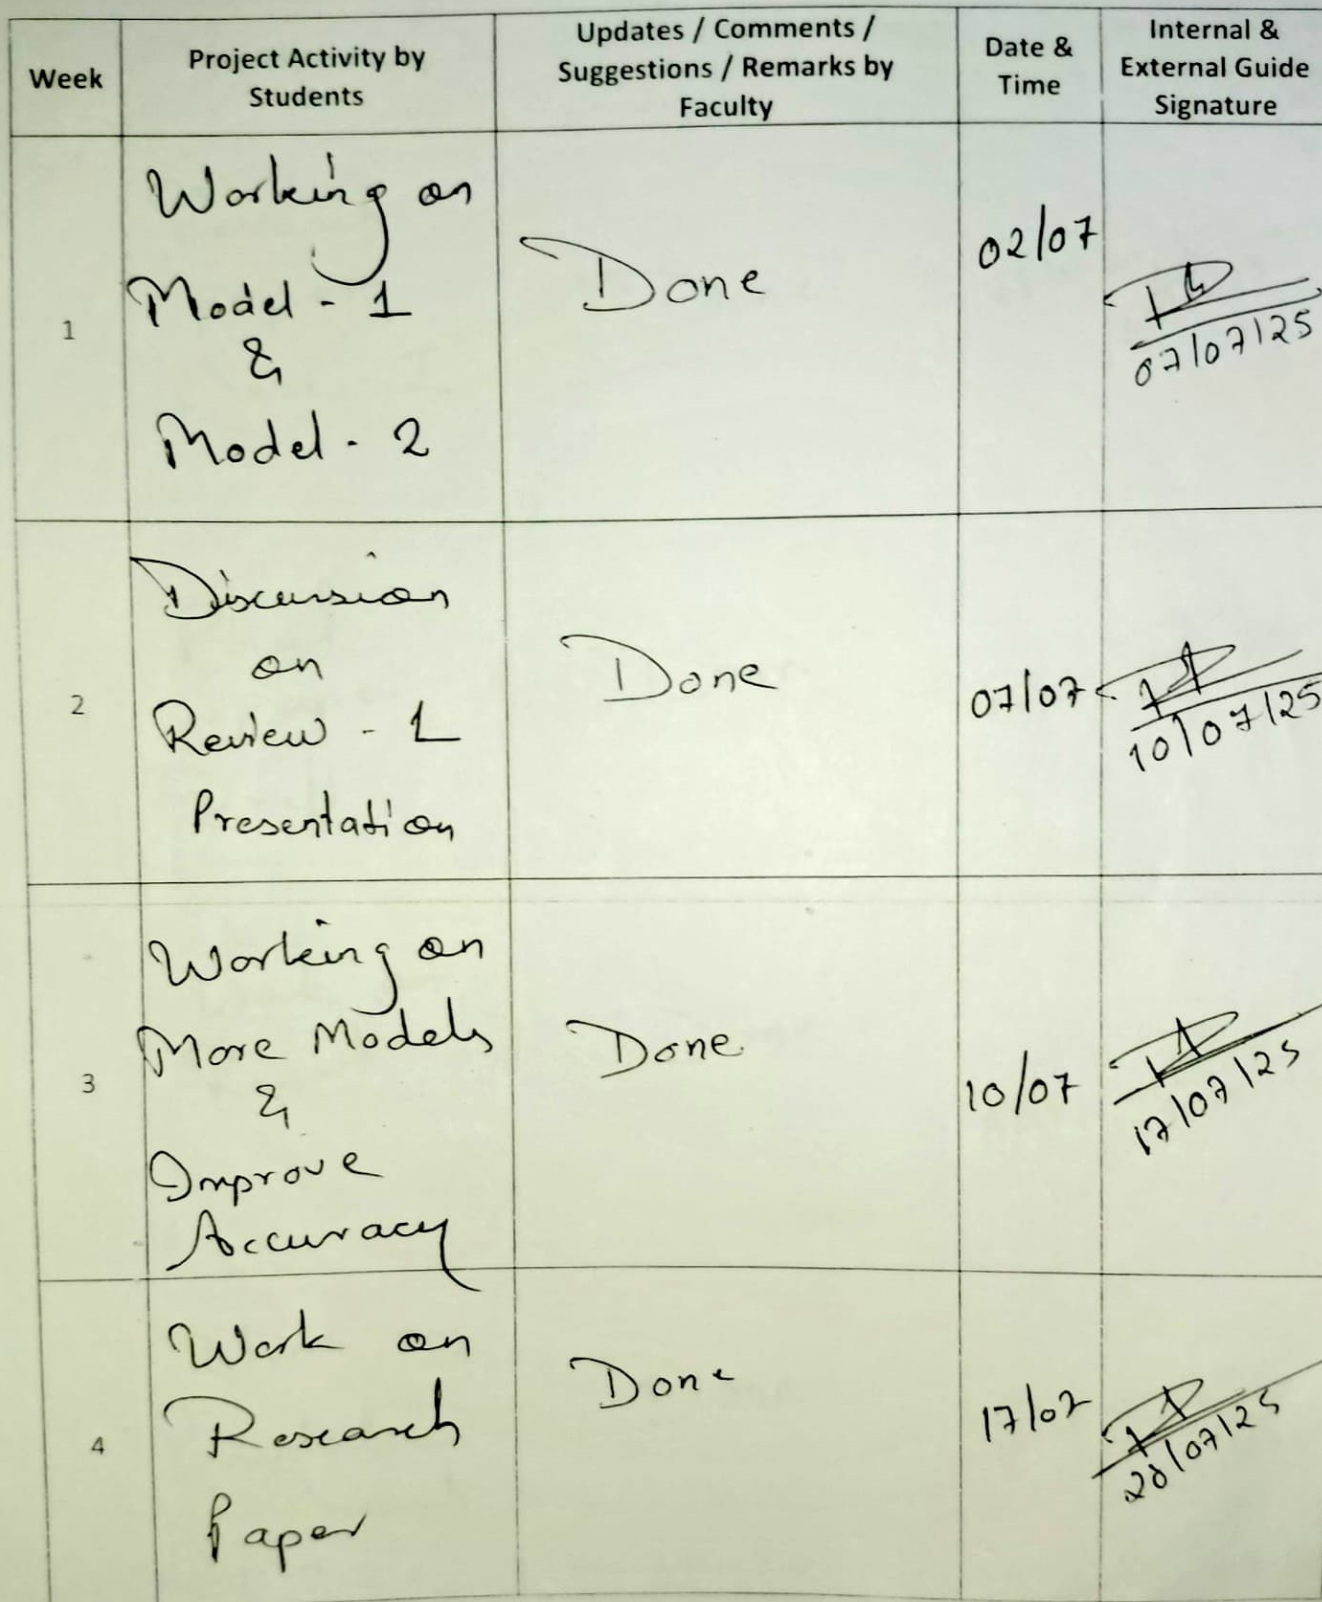 Week
Project Activity by
Students
Updates / Comments /
Suggestions / Remarks by
Faculty
Date &
Time
Internal &
External Guide
Signature
1
Working on
Model - 1
&
Model - 2
Done
02/07
07/07/25
2
Discussion
on
Review - 1
Presentation
Done
07/07
10/07/25
3
Working on
More Models
&
Improve
Accuracy
Done
10/07
17/07/25
4
Work on
Research
Paper
Done
17/07